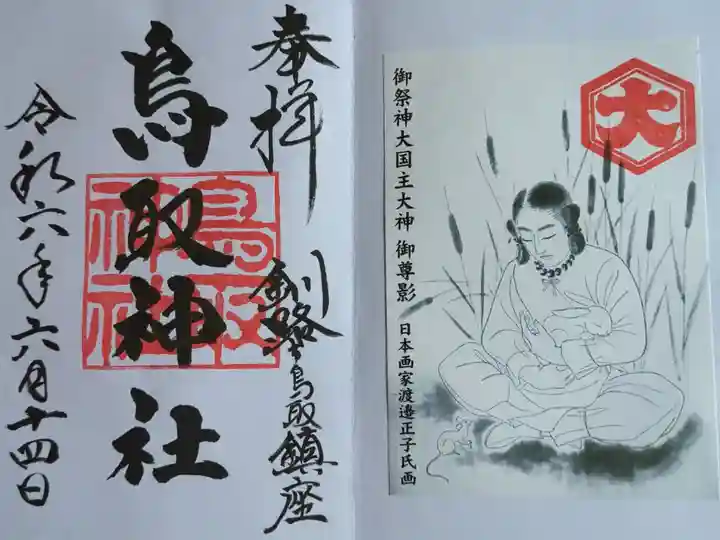 大
御祭神大国主大神 御尊影
日本画家渡邉正子氏画
奉拝
釧路鳥取鎮座
鳥取神社
鳥取神社
令和六年六月十四日